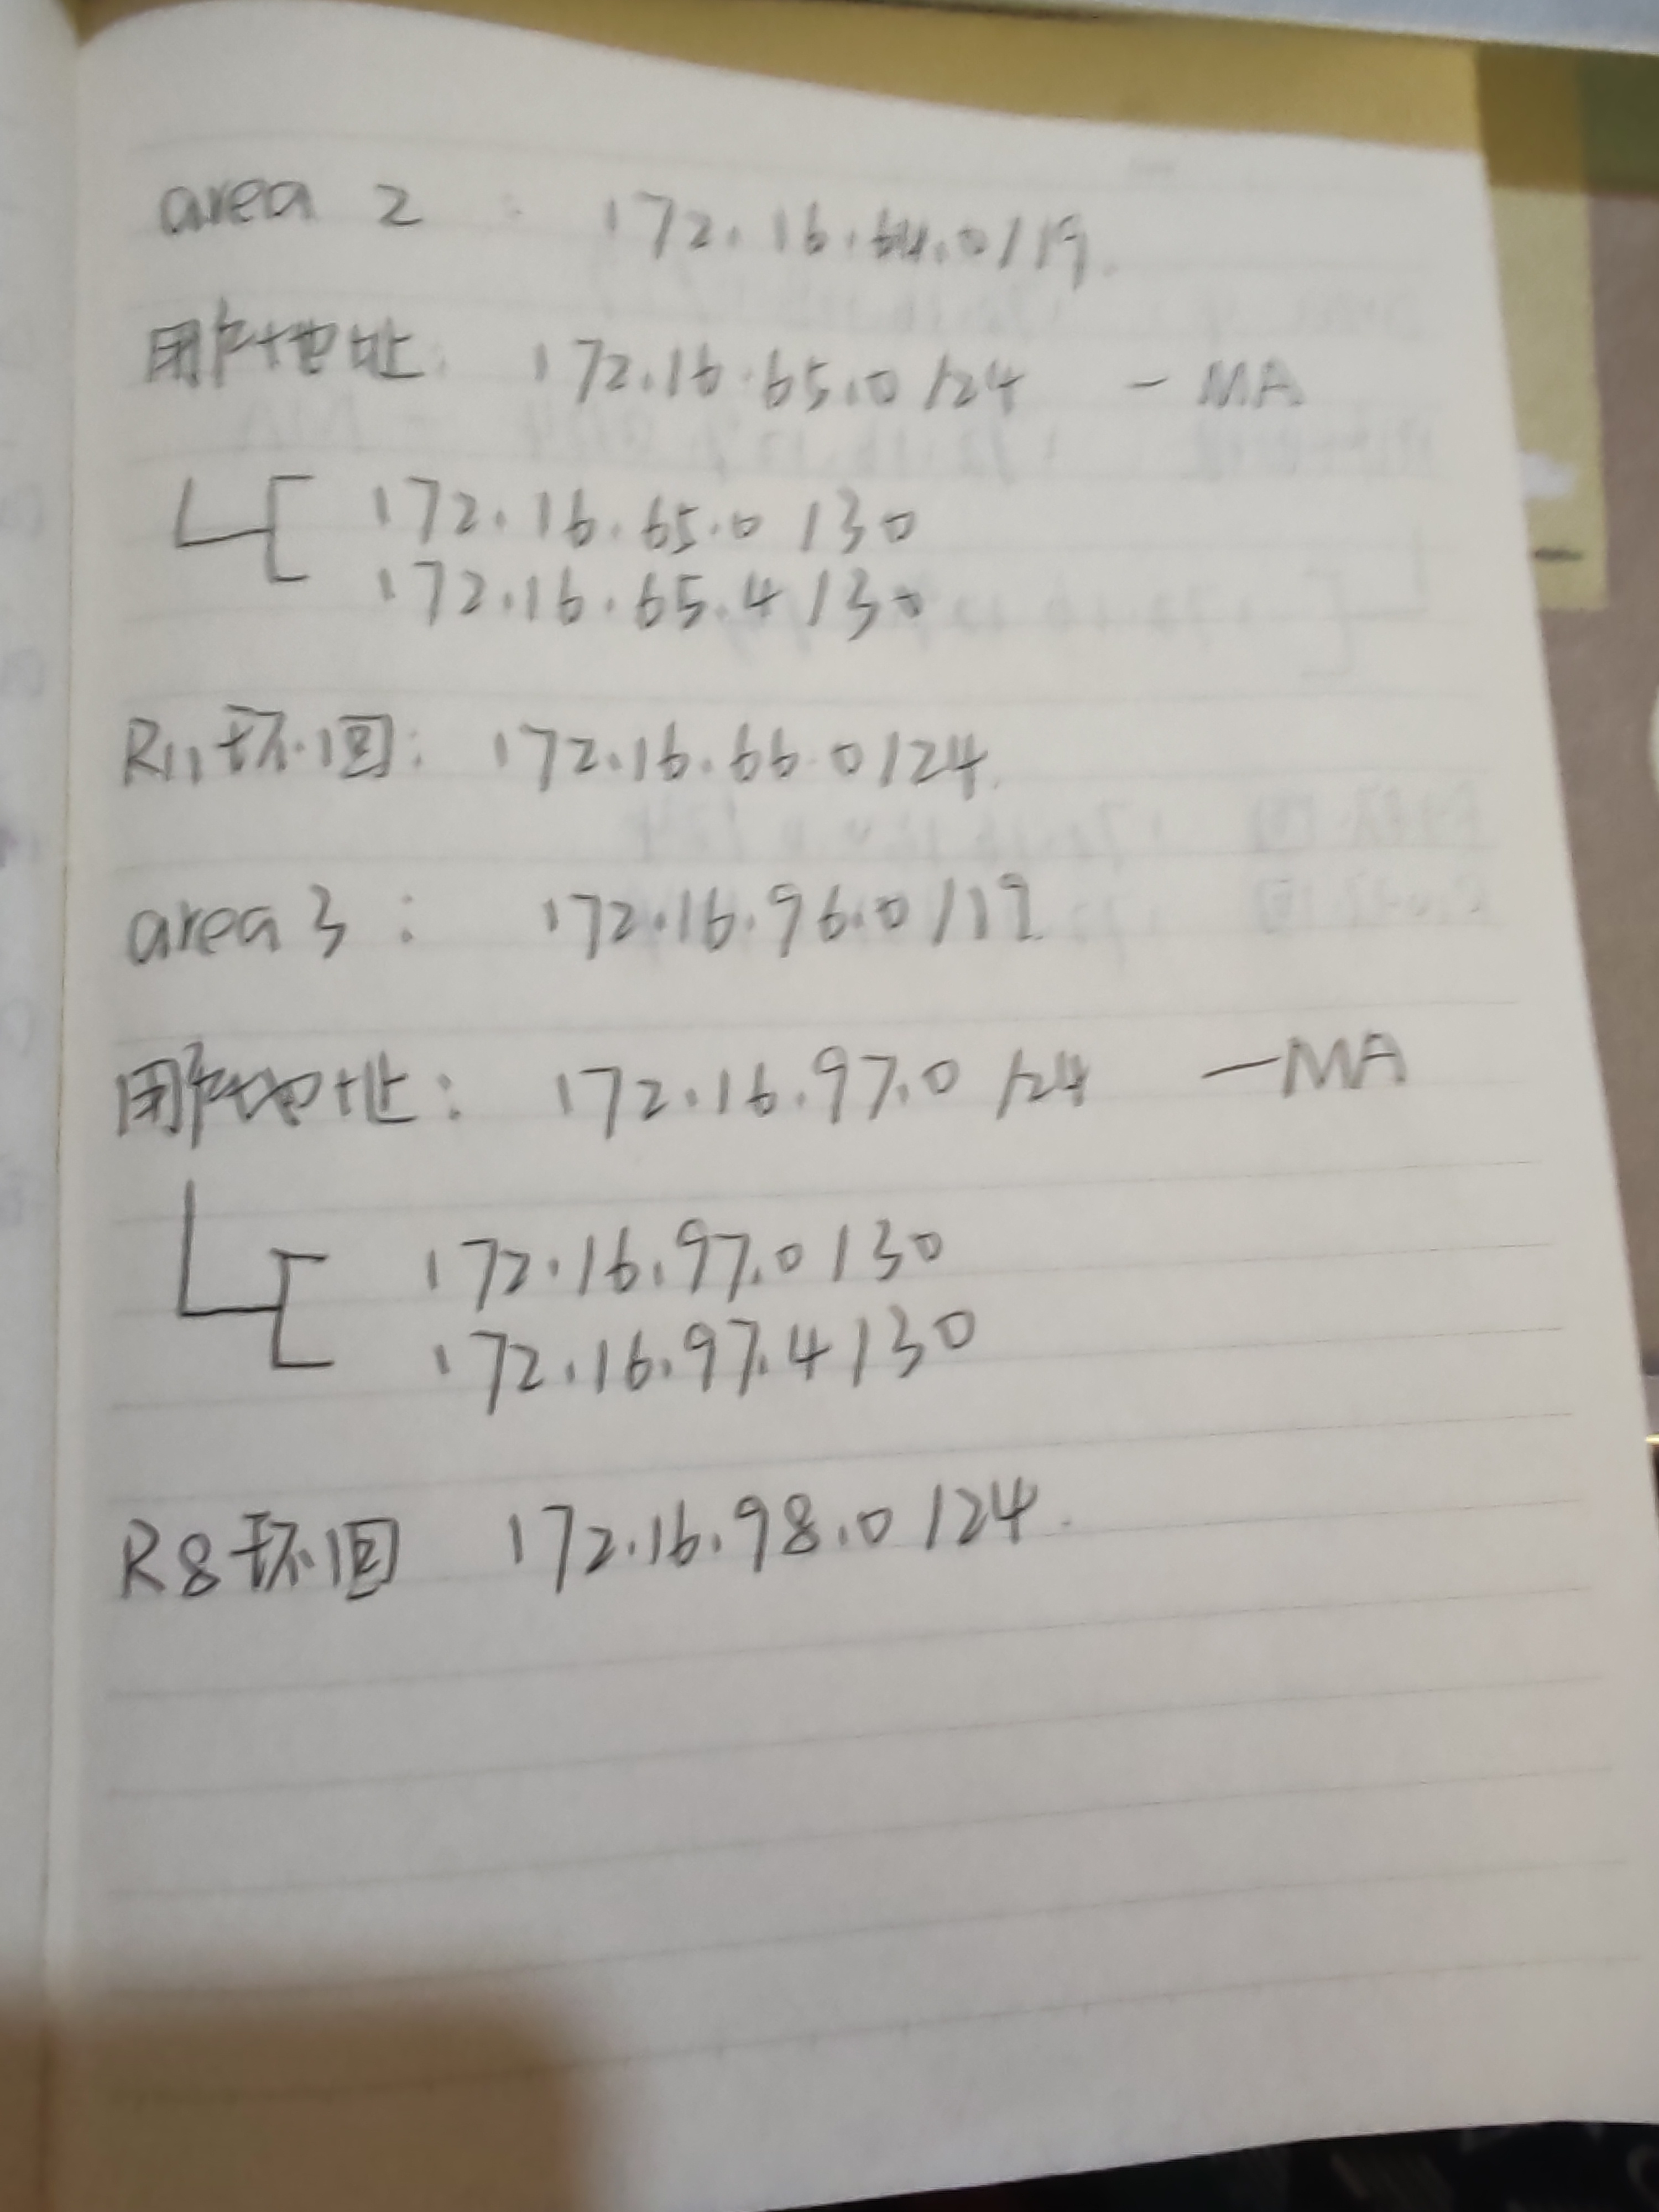 area 2 : 172.16.64.0/19.
用户地址: 172.16.65.0/24 - MA
172.16.65.0/30
172.16.65.4/30
R11环回: 172.16.66.0/24.
area 3: 172.16.96.0/19
用户地址: 172.16.97.0/24 - MA
172.16.97.0/30
172.16.97.4/30
R8环回 172.16.98.0/24.